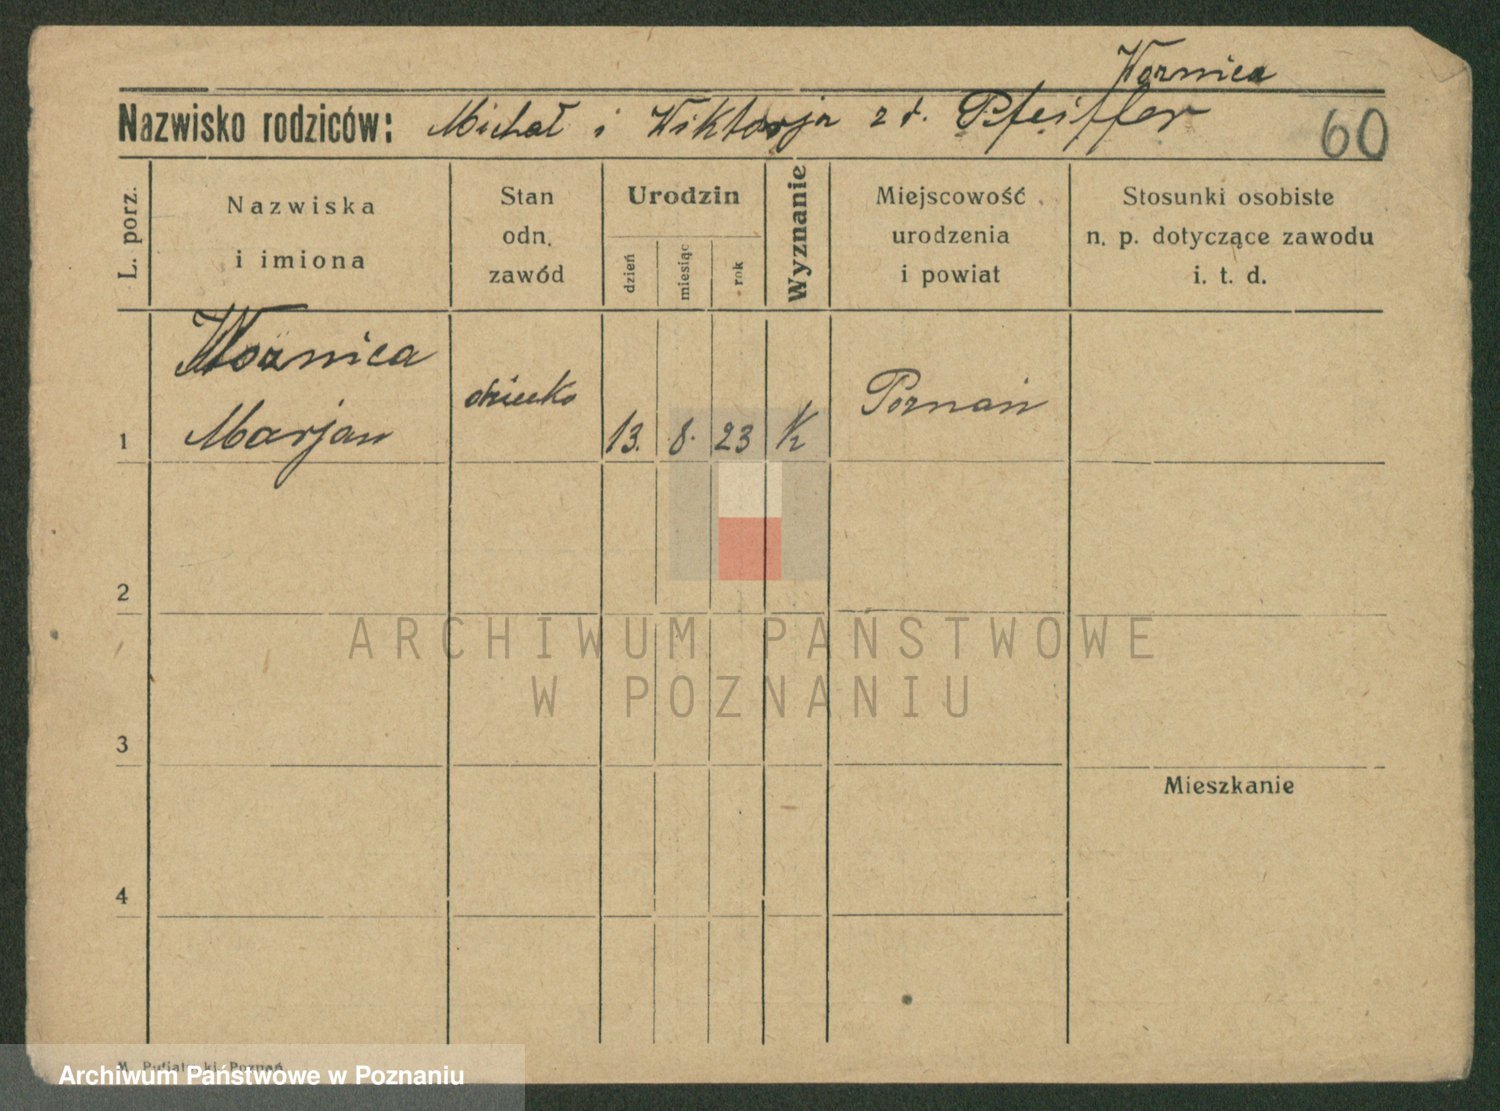 Woznica
Nazwisko rodziców: Michał i Wiktorja z d. Pfeiffer
60
L. porz.
Nazwiska
i imiona
Stan
odn.
zawód
Urodzin
dzień
miesiąc
rok
Wyznanie
Miejscowość
urodzenia
i powiat
Stosunki osobiste
n. p. dotyczące zawodu
i. t. d.
Woznica
1 Marjan dziecko 13. 8. 23 K Poznań
2
3
4
Mieszkanie
ARCHIWUM PAŃSTWOWE
W POZNANIU
Poznań
Archiwum Państwowe w Poznaniu